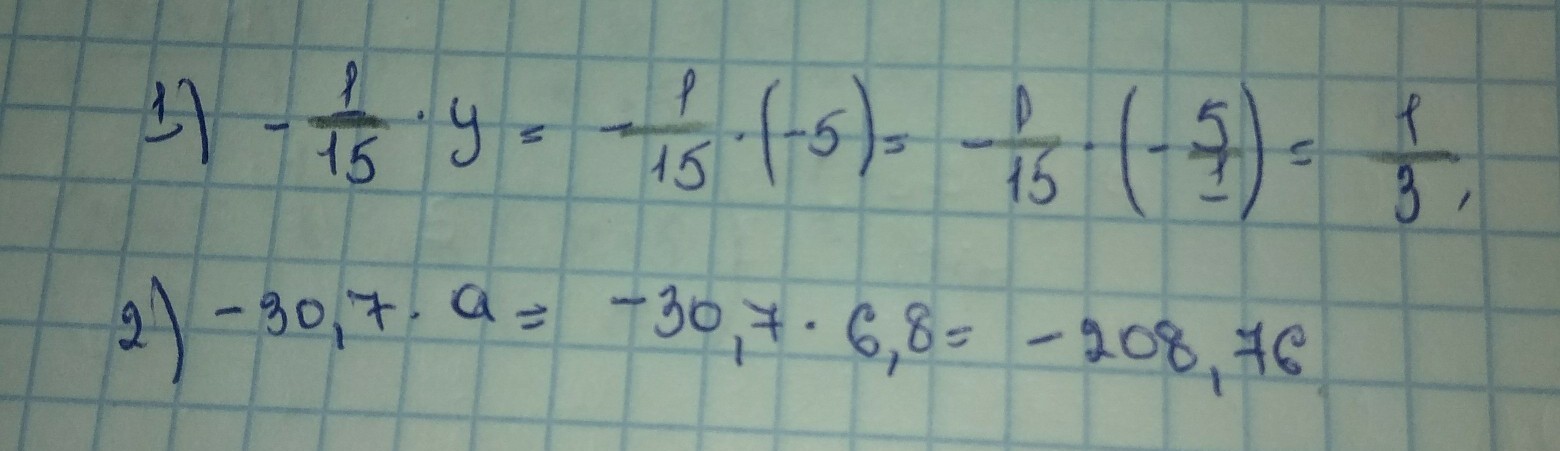 1) - 1/15 · y = - 1/15 · (-5) = - 1/15 · (- 5/1) = 1/3,
2) -30,7 · a = -30,7 · 6,8 = -208,76